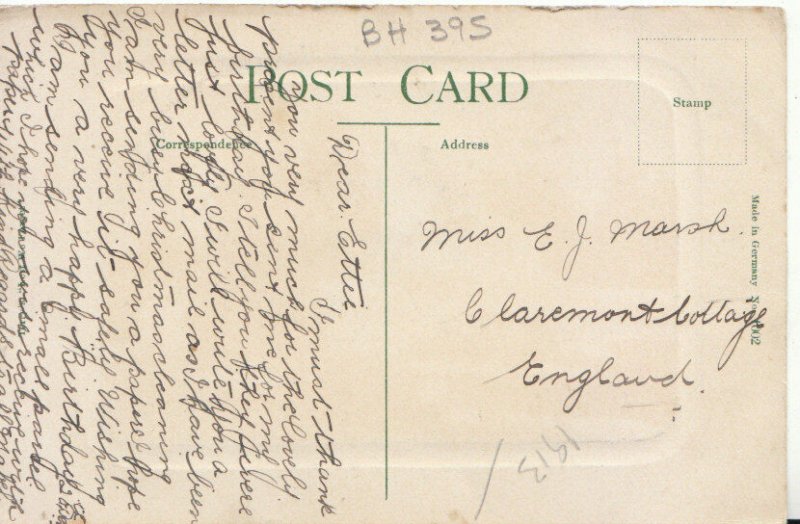 BH 395
POST CARD
Correspondence
Address
Stamp
Made in Germany
Dear Ettie
I must thank
you very much for the lovely
present you sent me for my
birthday. I tell you they were
just lovely I will write you a
letter next mail as I have been
very busy Christmas cleaning
I am sending you a paper I hope
you receive it safely Wishing
you a very happy Birthday
I am sending a small parcel
which I hope you receive with
Miss E. J. Marsh.
Claremont Cottage
England.
1913